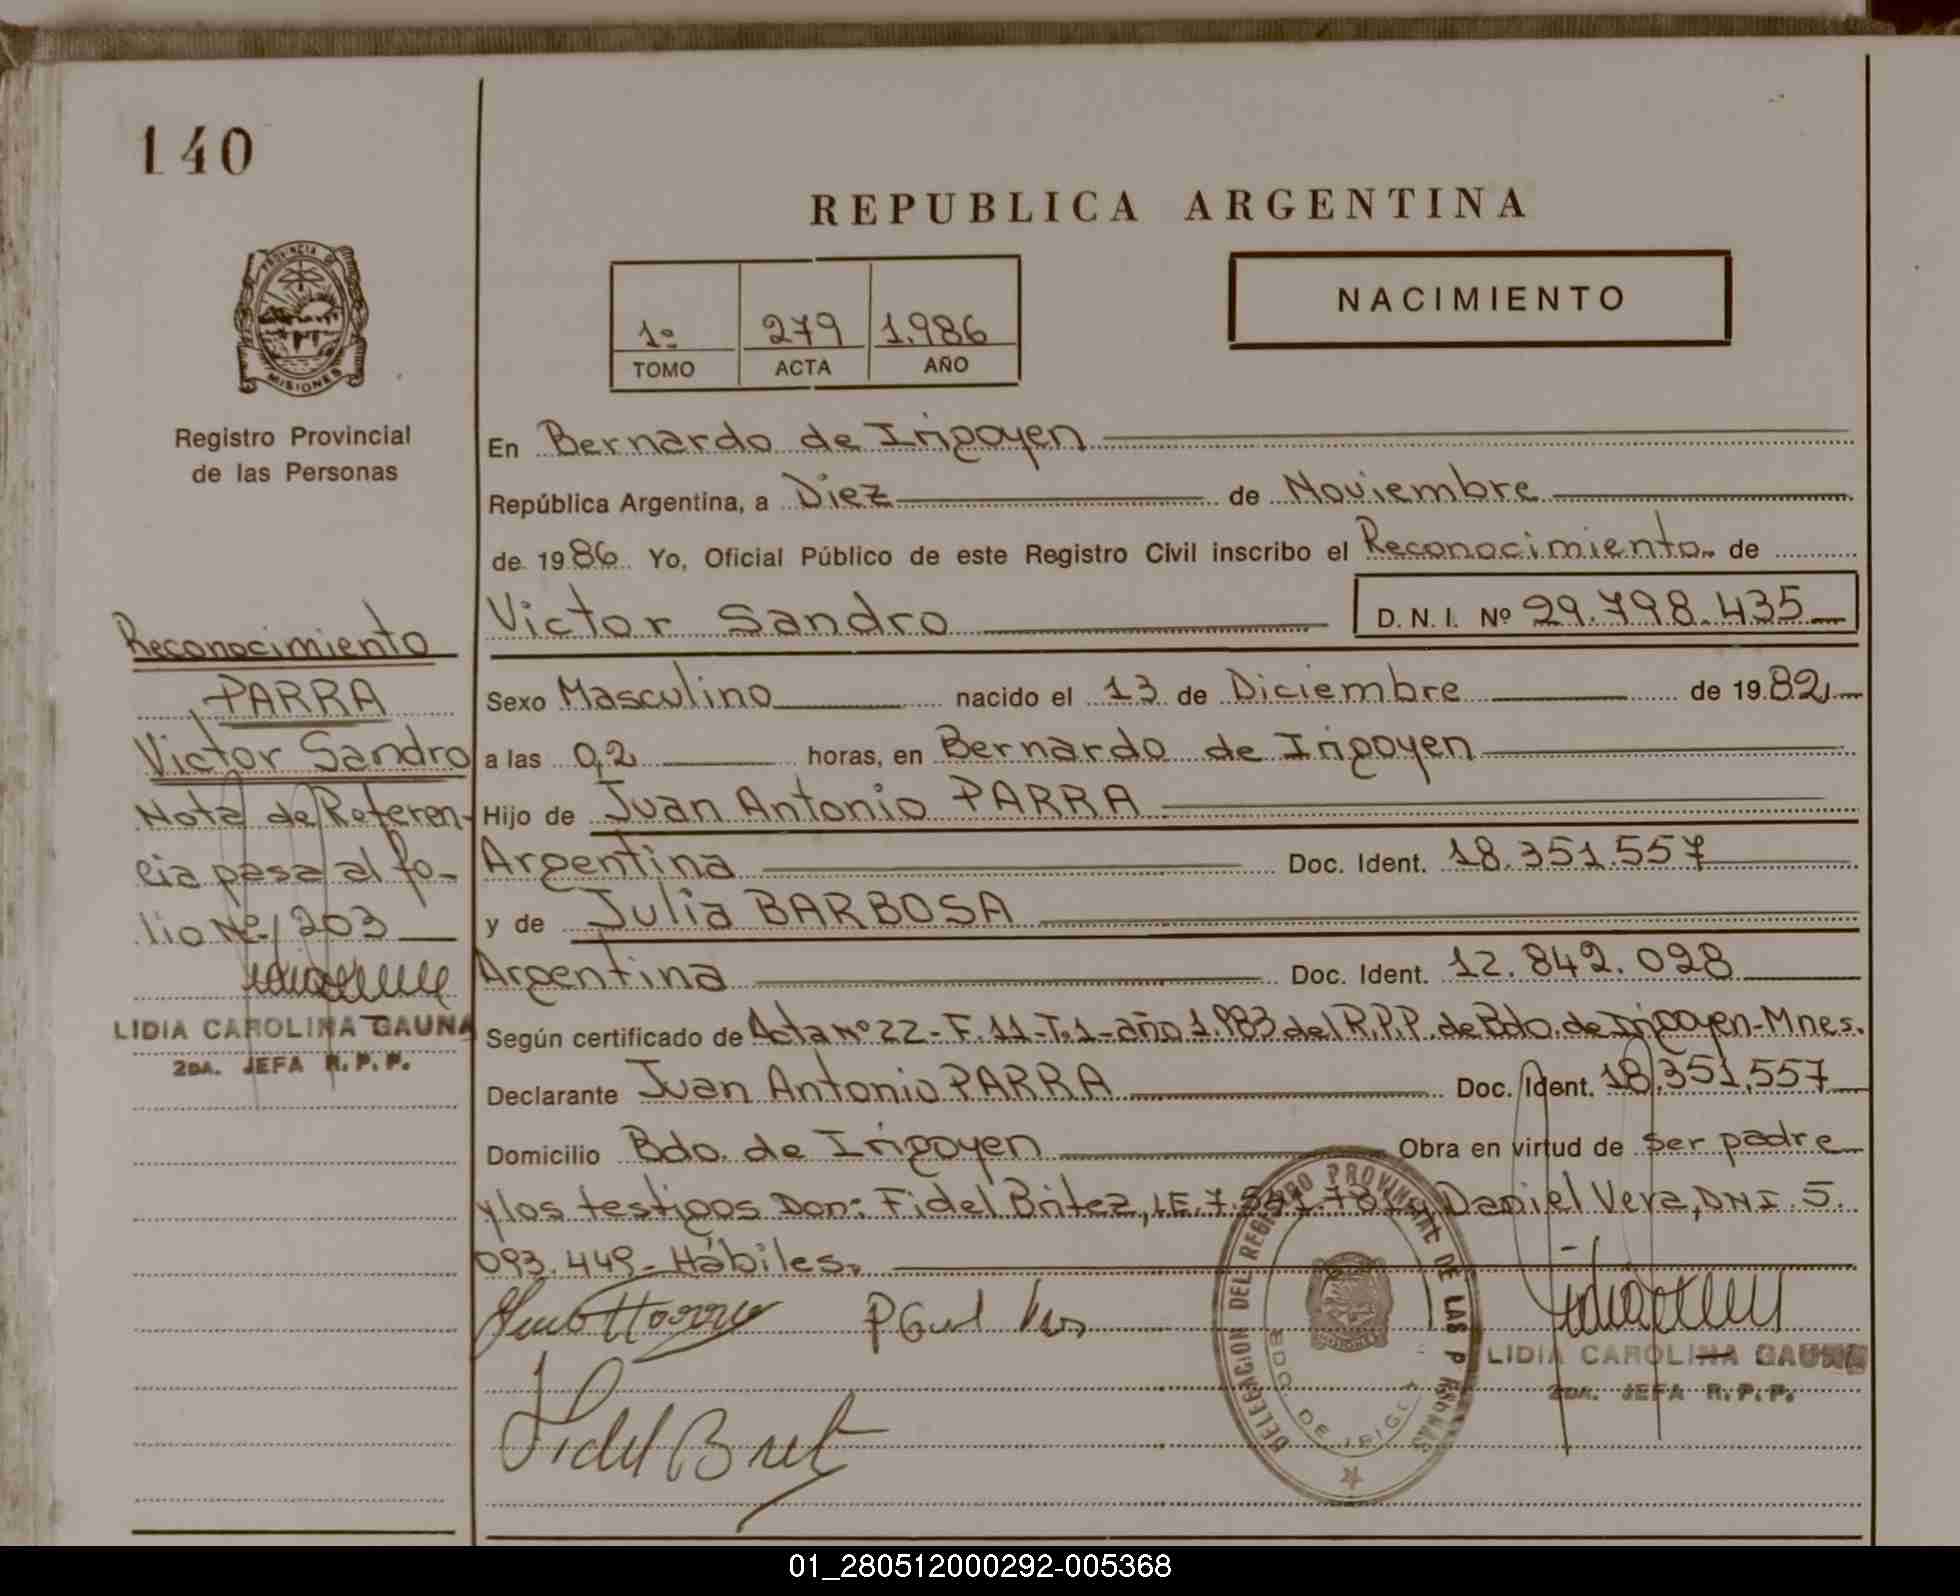 140
REPUBLICA ARGENTINA
PROVINCIA DE
MISIONES
1º 279 1.986
TOMO ACTA AÑO
NACIMIENTO
Registro Provincial
de las Personas
En Bernardo de Irigoyen
República Argentina, a Diez de Noviembre
de 1986. Yo, Oficial Público de este Registro Civil inscribo el Reconocimiento de
Victor Sandro D. N. I. Nº 29.798.435
Sexo Masculino nacido el 13 de Diciembre de 1982
a las 02 horas, en Bernardo de Irigoyen
Hijo de Juan Antonio PARRA
Argentina Doc. Ident. 18.351.557
y de Julia BARBOSA
Argentina Doc. Ident. 12.842.028
Según certificado de Acta Nº 22-F.11-T.1-año 1.983 del R.P.P. de Bdo. de Irigoyen-Mnes.
Declarante Juan Antonio PARRA Doc. Ident. 18.351.557
Domicilio Bdo. de Irigoyen Obra en virtud de ser padre
y los testigos Don: Fidel Britez, L.E. Daniel Vera, DNI. 5.
093.449- Hábiles.
Reconocimiento
PARRA
Victor Sandro
Nota de Referen-
cia pasa al fo-
lio Nº 203
LIDIA CAROLINA GAUNA
2DA. JEFA R.P.P.
DELEGACION DEL REGISTRO PROVINCIAL DE LAS PERSONAS
BDO. DE IRIG
LIDIA CAROLINA GAUNA
2DA. JEFA R.P.P.
01_280512000292-005368